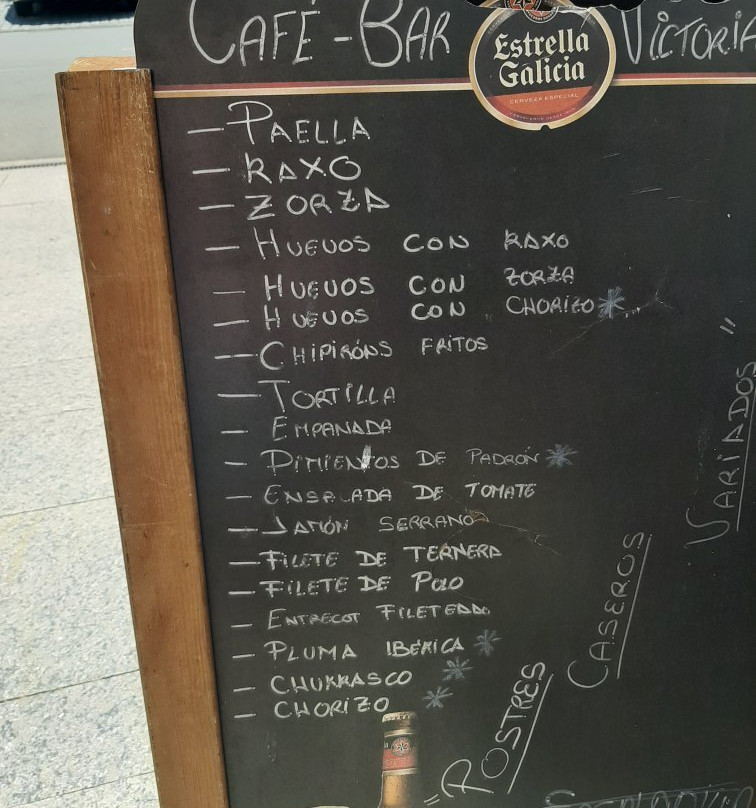 CAFÉ-BAR VICTORIA
Estrella
Galicia
CERVEZA ESPECIAL
— PAELLA
— RAXO
— ZORZA
— HUEVOS CON RAXO
— HUEVOS CON ZORZA
— HUEVOS CON CHORIZO *
— CHIPIRÓNS FRITOS
— TORTILLA
— EMPANADA
— PIMIENTOS DE PADRÓN *
— ENSALADA DE TOMATE
— JAMÓN SERRANO
— FILETE DE TERNERA
— FILETE DE POLLO
— ENTRECOT FILETEADO
— PLUMA IBÉRICA *
— CHURRASCO *
— CHORIZO *
"POSTRES
CASEROS
VARIADOS"